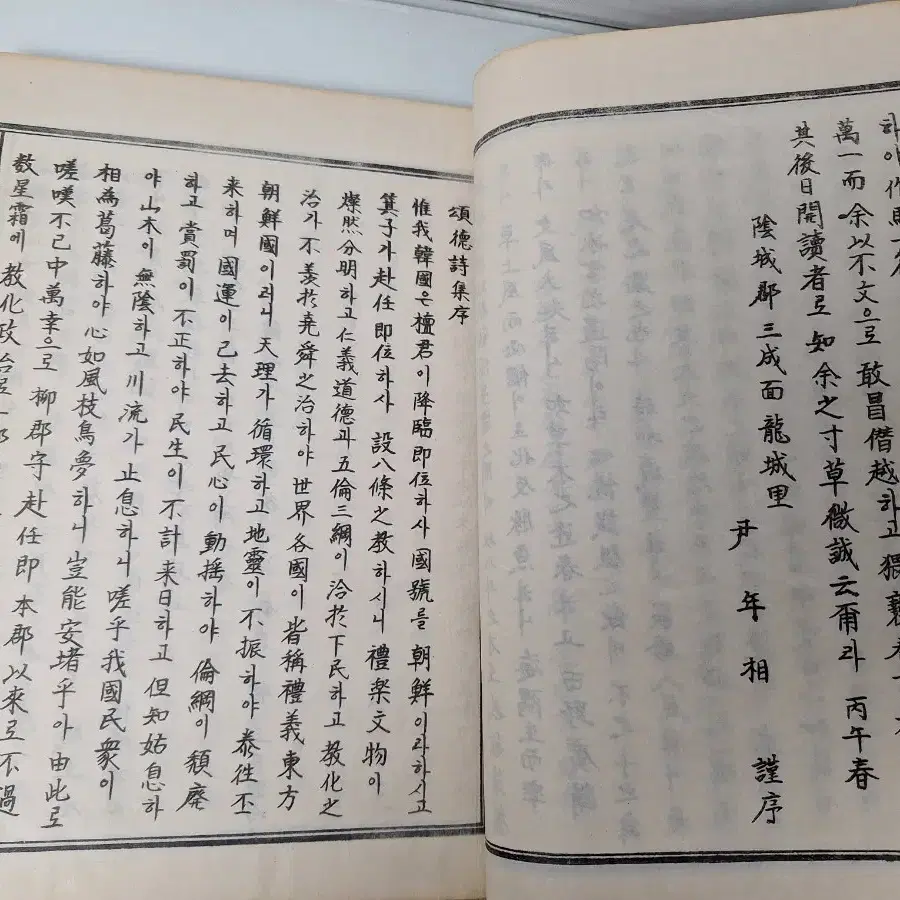 萬一而 余以不文으로 敢冒僭越하고 猥
其後日開讀者로 知余之寸草微誠云爾라 丙午春
陰城郡三成面龍城里
尹年相 謹序
頌德詩集序
惟我韓國은 檀君이 降臨即位하사 國號를 朝鮮이라하시고
箕子가 赴任即位하사 設八條之敎하시니 禮樂文物이
燦然分明하고 仁義道德과 五倫三綱이 洽於下民하고 敎化之
治가 不羨於堯舜之治하야 世界各國이 皆稱禮義東方
朝鮮國이러니 天理가 循環하고 地靈이 不振하야 泰徃丕
来하며 國運이 已去하고 民心이 動揺하야 倫綱이 頹廢
하고 賞罰이 不正하야 民生이 不計来日하고 但知姑息하
야 山木이 無陰하고 川流가 止息하니 嗟乎我國民衆이
相為葛藤하야 心如風枝鳥夢하니 豈能安堵乎아 由此로
嗟嘆不已中萬幸으로 柳郡守赴任即本郡以來로 不過
数星霜에 敎化政治